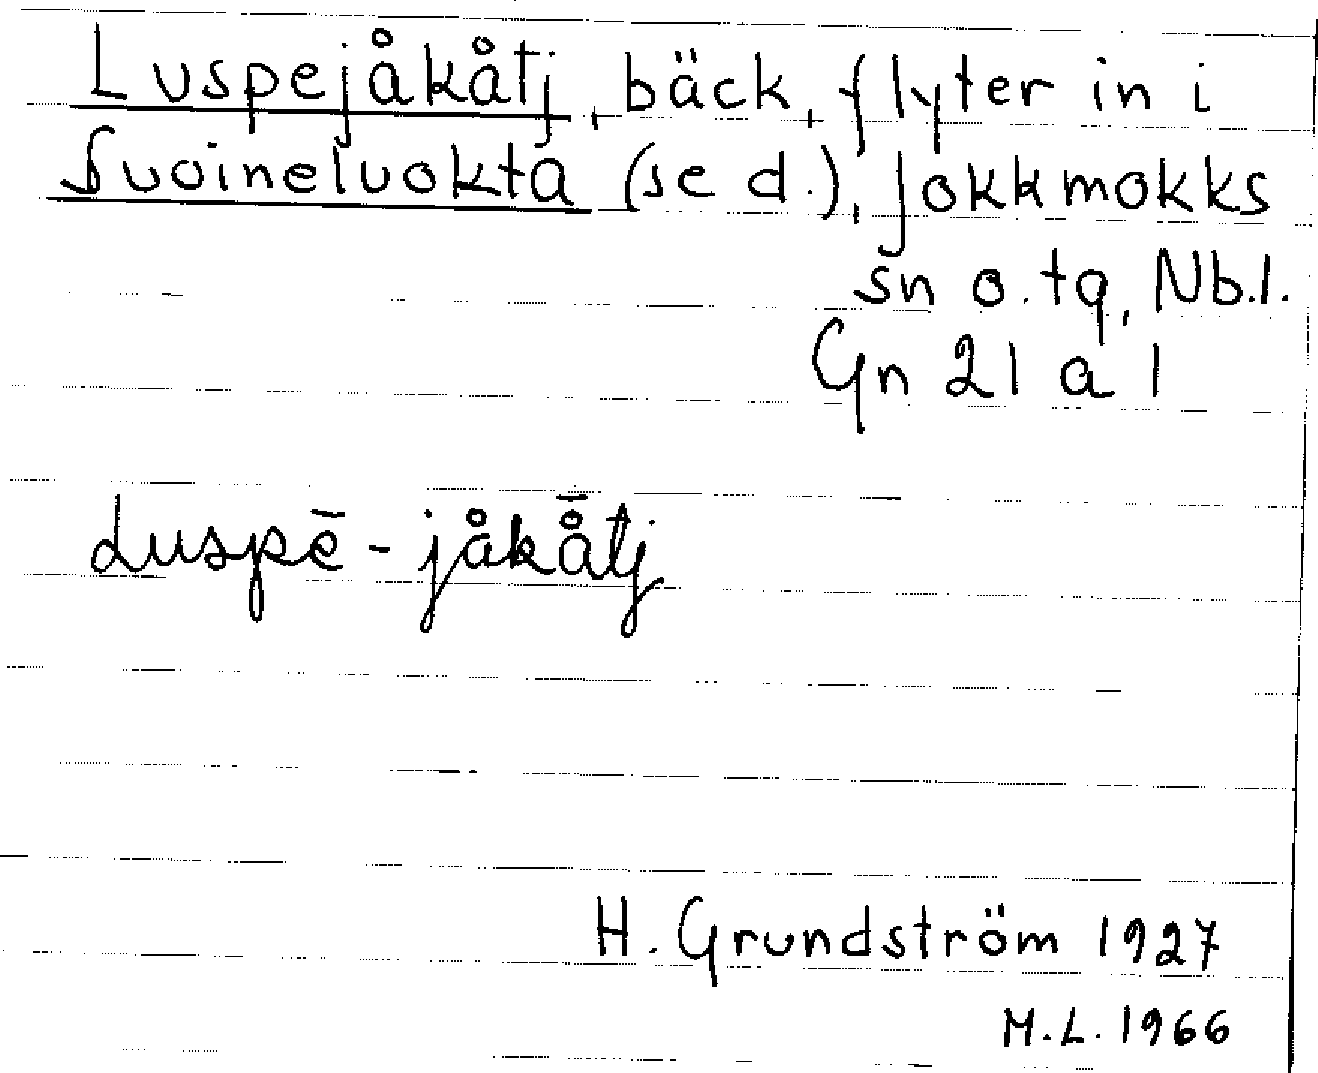 Luspejåkåtj, bäck, flyter in i
Suoineluokta (se d.), Jokkmokks
sn o. tg, Nb.l.
Gn 21 a 1
Luspē-jåkå̄tj
H. Grundström 1927
M.L. 1966